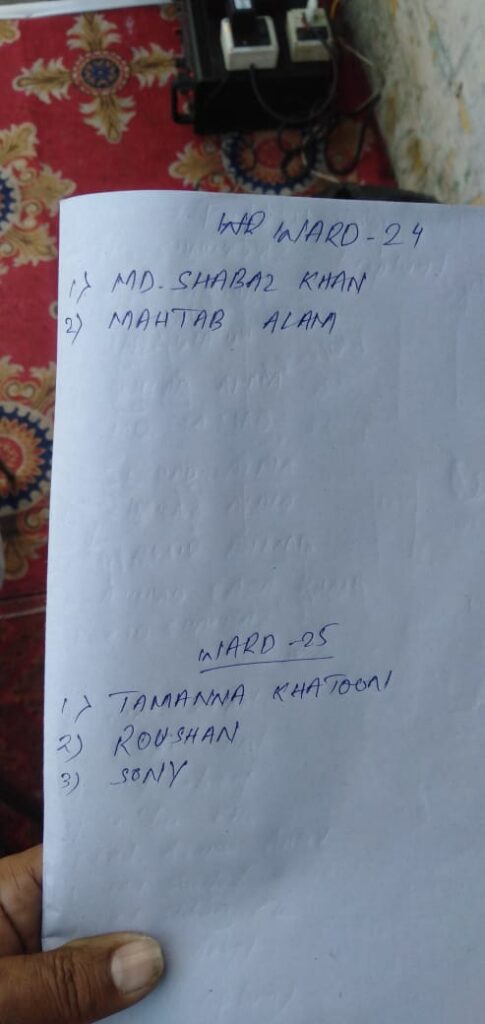 WARD-24
1) MD. SHABAZ KHAN
2) MAHTAB ALAM
WARD-25
1) TAMANNA KHATOON
2) ROUSHAN
3) SONY